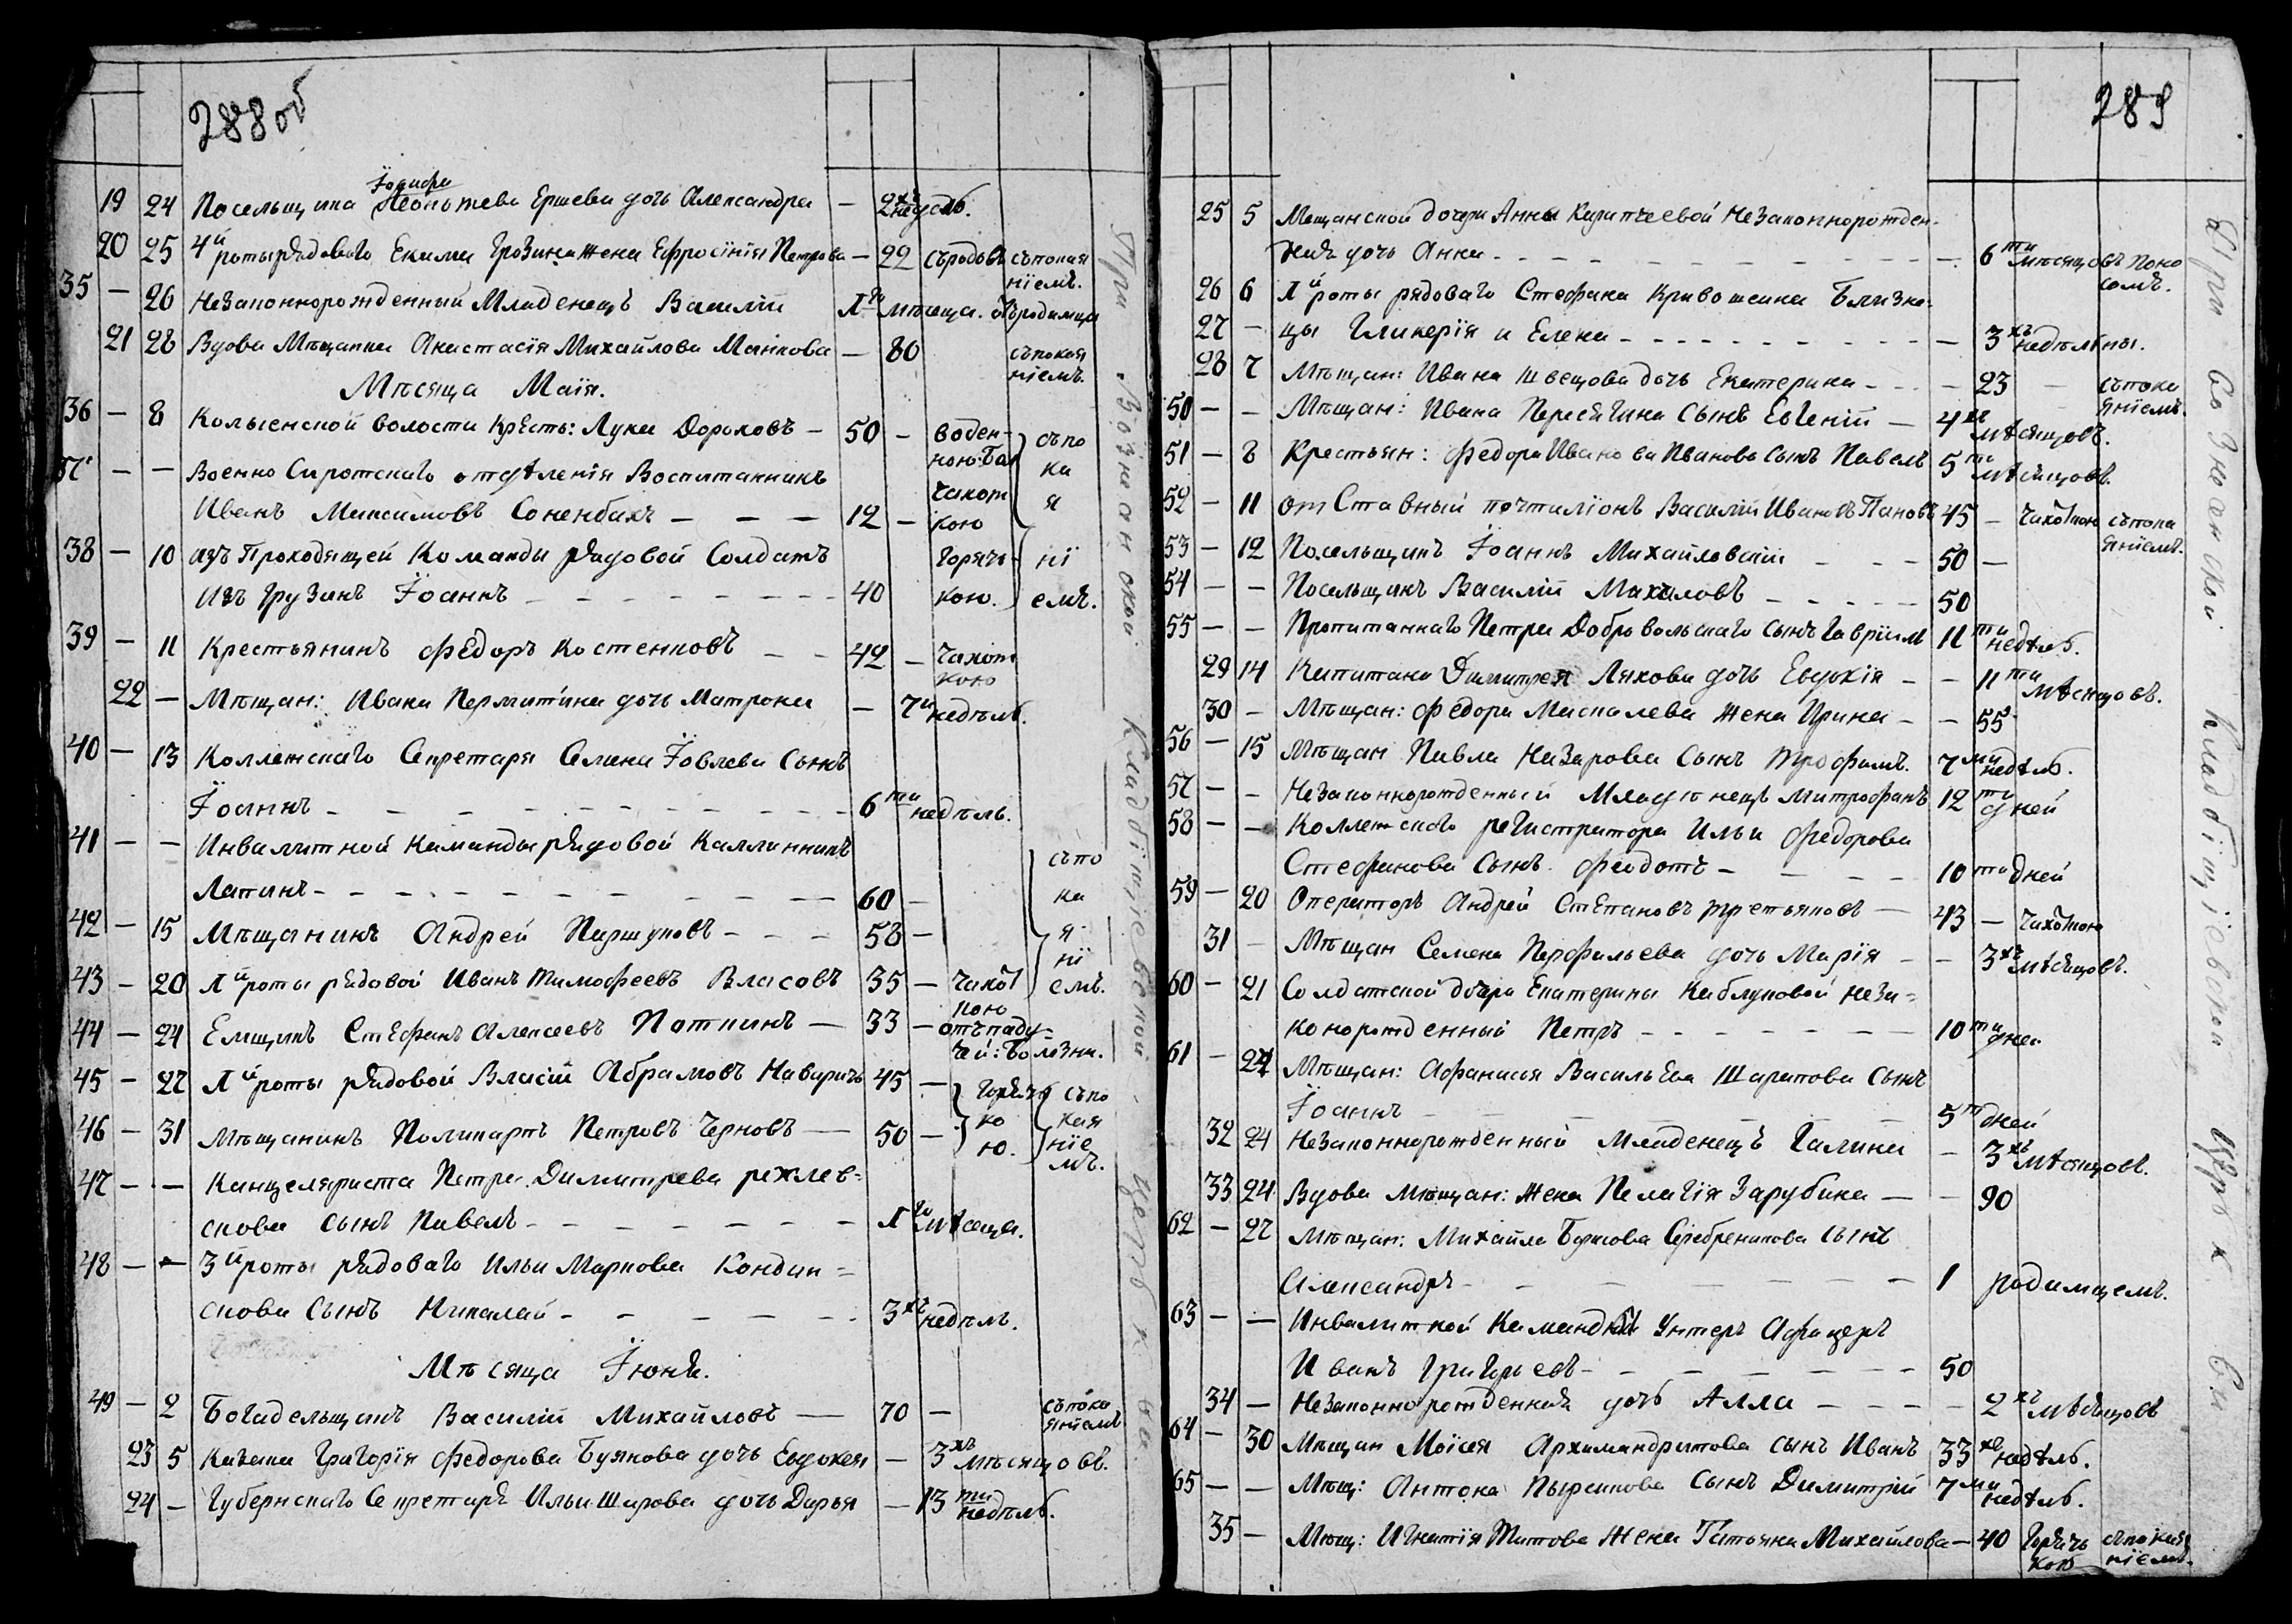 288 об
19 24 Посельщика Іосифа Ершева дочь Александра — 2хъ недѣль.
20 25 4й роты рядоваго Екима Грозина жена Ефросінія Петрова — 22 съ родовъ съ покая
ніемъ.
35 — 26 Незаконнорожденный Младенецъ Василій 1го мѣсяца. отъ родимца
21 28 Вдова Мѣщанка Анастасія Михайлова — 80 съ покая
ніемъ.
Мѣсяца Маія.
36 — 8 волости Кресть: Луки Дороховъ — 50 — водян-
ною: Бол
— — Военно Сиротскаго отдѣленія Воспитанникъ чахот
Иванъ Максимовъ — — — 12 — кою
съ по
ка
я
38 — 10 изъ Проходящей Команды рядовой Солдатъ горяч- ні
изъ Грузинъ Іоаннъ — — — 40 кою. емъ.
39 — 11 Крестьянинъ Федоръ Костенковъ — — 42 — Чахот
кою
22 — Мѣщан: Ивана Пермитина дочь Матрона — 7и недѣль.
40 — 13 Коллежскаго Секретаря Іовлева Сынъ
Іоаннъ — — — 6ти недѣль.
41 — — Инвалитной Каманды рядовой Каллинникъ съ по
Лапинъ — — — 60 — ка
42 — 15 Мѣщанинъ Андрей Паршуковъ — — — 58 — я
ні
43 — 20 1й роты рядовой Иванъ Тимофеевъ Власовъ 35 — Чахот емъ.
кою
44 — 24 Емщикъ Стефанъ Алексеевъ Поткинъ — 33 — отъ паду-
чей: Болезни.
45 — 27 1й роты рядовой Власій Абрамовъ 45 — Горячь съ по
46 — 31 Мѣщанинъ Поликарпъ Петровъ Черновъ — 50 — ко кая
ю. ніе
мъ.
47 — — Канцеляриста Петра Димитрева Рехлев=
скова сынъ Павелъ — — — 1го мѣсяца.
48 — — 3й роты рядоваго Ильи Маркова Кондин=
скова Сынъ Николай — — — 3хъ недѣль.
Мѣсяца Іюня.
49 — 2 Богадельщикъ Василій Михайловъ — 70 — съ пока
яніемъ
23 5 Казака Григорія Федорова Буянова дочь Евдокея — 3хъ мѣсяцовъ.
24 — Губернскаго Секретаря Ильи Шарова дочь Дарья — 13ти недѣль.
При Вознесенской Кладбищіевской церькви
289
25 5 Мещанской дочери Анны Незаконнорожден-
ная дочь Анна — — — 6ти мѣсяцовъ поно
сомъ.
26 6 1й роты рядоваго Стефана Кривошеина Близне-
27 — цы Гликерія и Елена — — — 3хъ недѣльны.
28 7 Мѣщан: Ивана Швецова дочь Екатерина — — — 23 — съ пока
яніемъ.
50 — — Мѣщан: Ивана Пересягина Сынъ Евгеній — 4хъ мѣсяцовъ.
51 — 8 Крестьян: Федора Иванова Ивановъ Сынъ Павелъ 5ти мѣсяцовъ.
52 — 11 отСтавный почтиліонъ Василій Ивановъ Пановъ 45 — Чахоткою съ пока
яніемъ.
53 — 12 Посельщикъ Іоаннъ Михайловскій — — — 50 —
54 — — Посельщикъ Василій Махаловъ — — — 50
55 — — Пропитаннаго Петра Добровольскаго сынъ Гавріилъ 11ти недѣль.
29 14 Капитана Димитрея Ляхова дочь Евдокія — — 11ти мѣсяцовъ.
30 — Мѣщан: Федора Маскалева жена Ирина — — 55
56 — 15 Мѣщан Павла Назарова Сынъ Трофимъ. 7ми недѣль.
57 — — Незаконнорожденный Младенецъ Митрофанъ 12ти дней
58 — — Коллежскаго регистратора Ильи Федорова
Стефанова Сынъ Феодотъ — — — 10ти дней
59 — 20 Операторъ Андрей Степановъ Третьяковъ — 43 — Чахоткою
31 — Мѣщан Семена Перфильева дочь Марія — — 3хъ мѣсяцовъ.
60 — 21 Солдатской дочери Екатерины Каблуковой неза=
конорожденный Петръ — — — 10ти дней
61 — 24 Мѣщан: Афанасья Васильева Шарапова Сынъ
Іоаннъ — — — 5ти дней
32 24 Незаконнорожденный Младенецъ Галина — 3хъ мѣсяцовъ.
33 24 Вдова мѣщан: жена Пелагія Зарубина — — 90
62 — 27 Мѣщан: Михайла Борисова Серебреникова Сынъ
Александръ — — — 1 родимцемъ.
63 — — Инвалитной Каманды Унтеръ Афицеръ
Иванъ Григорьевъ — — — 50
34 — Незаконнорожденная дочь Алла — — — 2хъ мѣсяцовъ
64 — 30 Мѣщан Моісея Архимандритова сынъ Иванъ 33хъ недѣль.
65 — — Мѣщ: Антона Пырсикова Сынъ Димитрій 7ми недѣль.
35 — Мѣщ: Игнатія Титова жена Татьяна Михайлова — 40 Горячь съ покая
кою ніемъ.
При Вознесенской Кладбищіевской Церьк ви